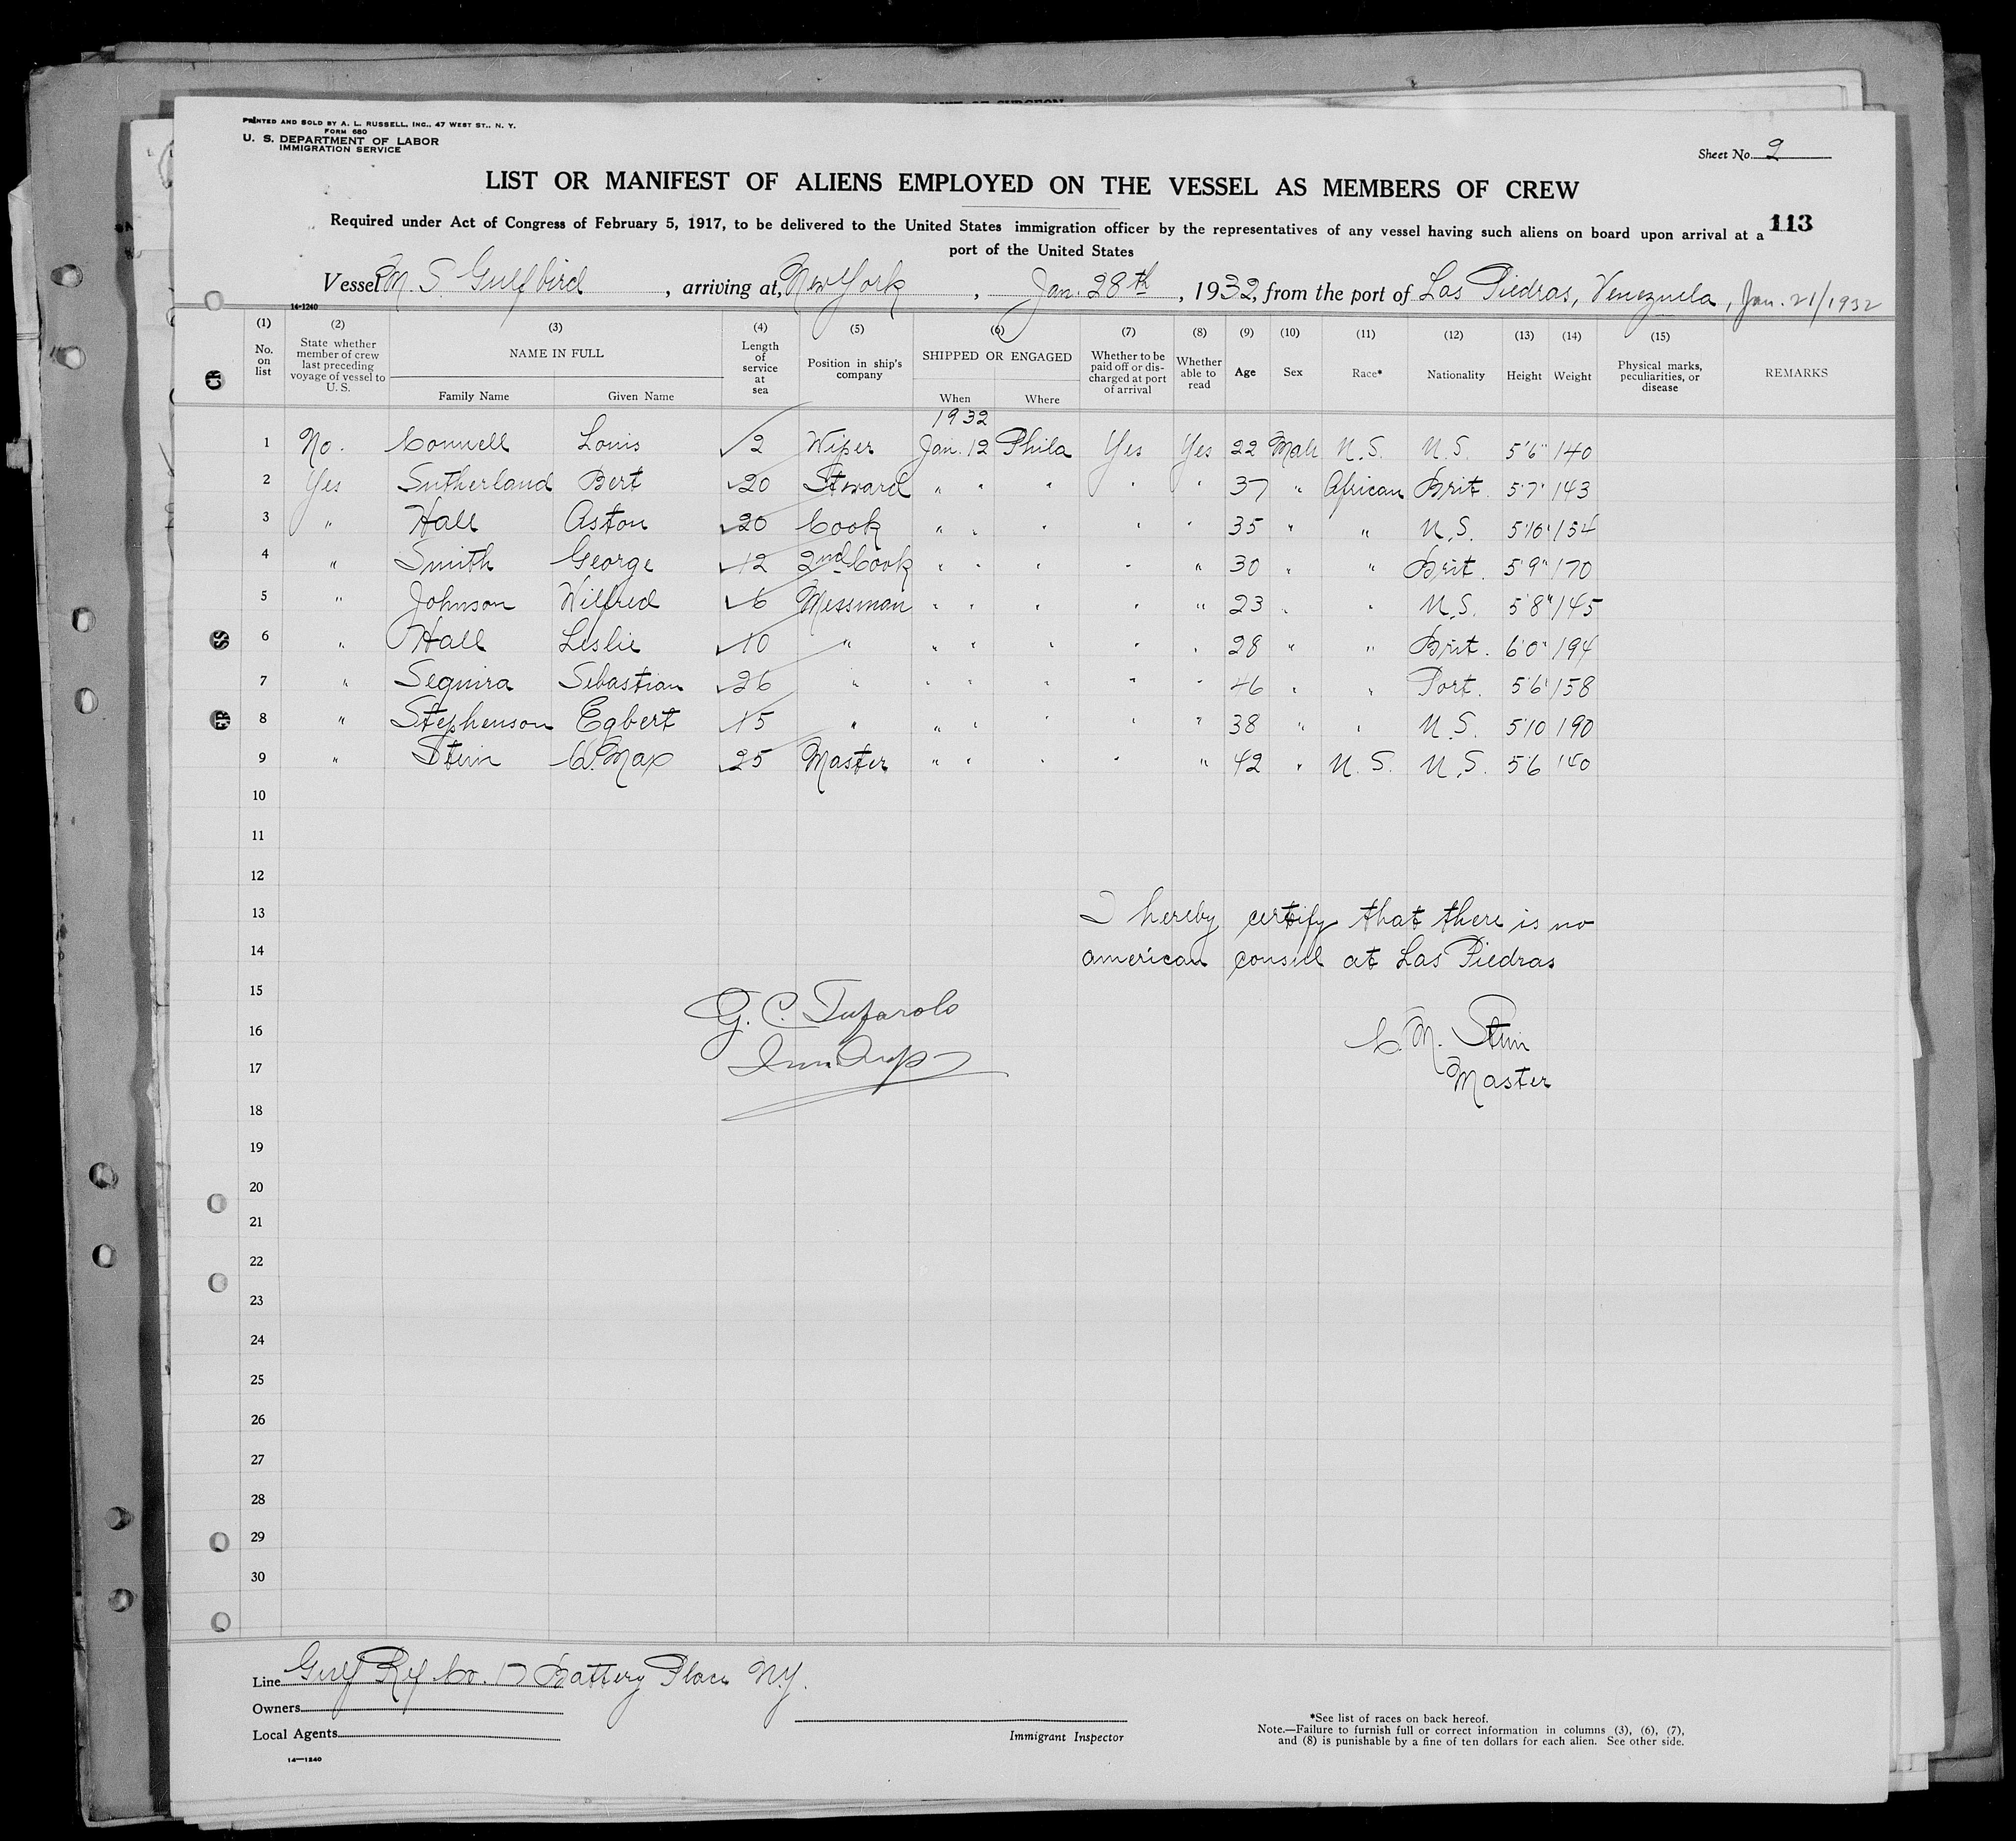 PRINTED AND SOLD BY A. L. RUSSELL, INC., 47 WEST ST., N. Y.
FORM 680
U. S. DEPARTMENT OF LABOR
IMMIGRATION SERVICE
Sheet No. 2
LIST OR MANIFEST OF ALIENS EMPLOYED ON THE VESSEL AS MEMBERS OF CREW
113
Required under Act of Congress of February 5, 1917, to be delivered to the United States immigration officer by the representatives of any vessel having such aliens on board upon arrival at a
port of the United States
Vessel M. S. Gulfbird, arriving at, New York, Jan. 28th, 1932, from the port of Las Piedras, Venezuela, Jan. 21/1932
14-1240
(1) (2) (3) (4) (5) (6) (7) (8) (9) (10) (11) (12) (13) (14) (15)
No. on list State whether member of crew last preceding voyage of vessel to U. S. NAME IN FULL Length of service at sea Position in ship's company SHIPPED OR ENGAGED Whether to be paid off or discharged at port of arrival Whether able to read Age Sex Race* Nationality Height Weight Physical marks, peculiarities, or disease REMARKS
Family Name Given Name When Where
1932
1 No. Connell Louis 2 Wiper Jan. 12 Phila Yes Yes 22 Male U.S. U.S. 5'6" 140
2 Yes Sutherland Bert 20 Steward " " " " " 37 " African Brit. 5'7" 143
3 " Hall Aston 20 Cook " " " " " 35 " " U.S. 5'10" 154
4 " Smith George 12 2nd Cook " " " " " 30 " " Brit. 5'9" 170
5 " Johnson Wilfred 6 Messman " " " " " 23 " " U.S. 5'8" 145
6 " Hall Leslie 10 " " " " " " 28 " " Brit. 6'0" 194
7 " Sequira Sebastian 26 " " " " " " 46 " " Port. 5'6" 158
8 " Stephenson Egbert 15 " " " " " " 38 " " U.S. 5'10 190
9 " Stein C. Max 25 Master " " " " " 42 " U.S. U.S. 5'6 140
10
11
12
13 I hereby certify that there is no
14 american consul at Las Piedras
15 G. C.
16 C. M. Stein
17 Master
18
19
20
21
22
23
24
25
26
27
28
29
30
Line Gulf Ref Co. 17 Battery Place N.Y.
Owners
Local Agents
Immigrant Inspector
*See list of races on back hereof.
Note.—Failure to furnish full or correct information in columns (3), (6), (7),
and (8) is punishable by a fine of ten dollars for each alien. See other side.
14—1240